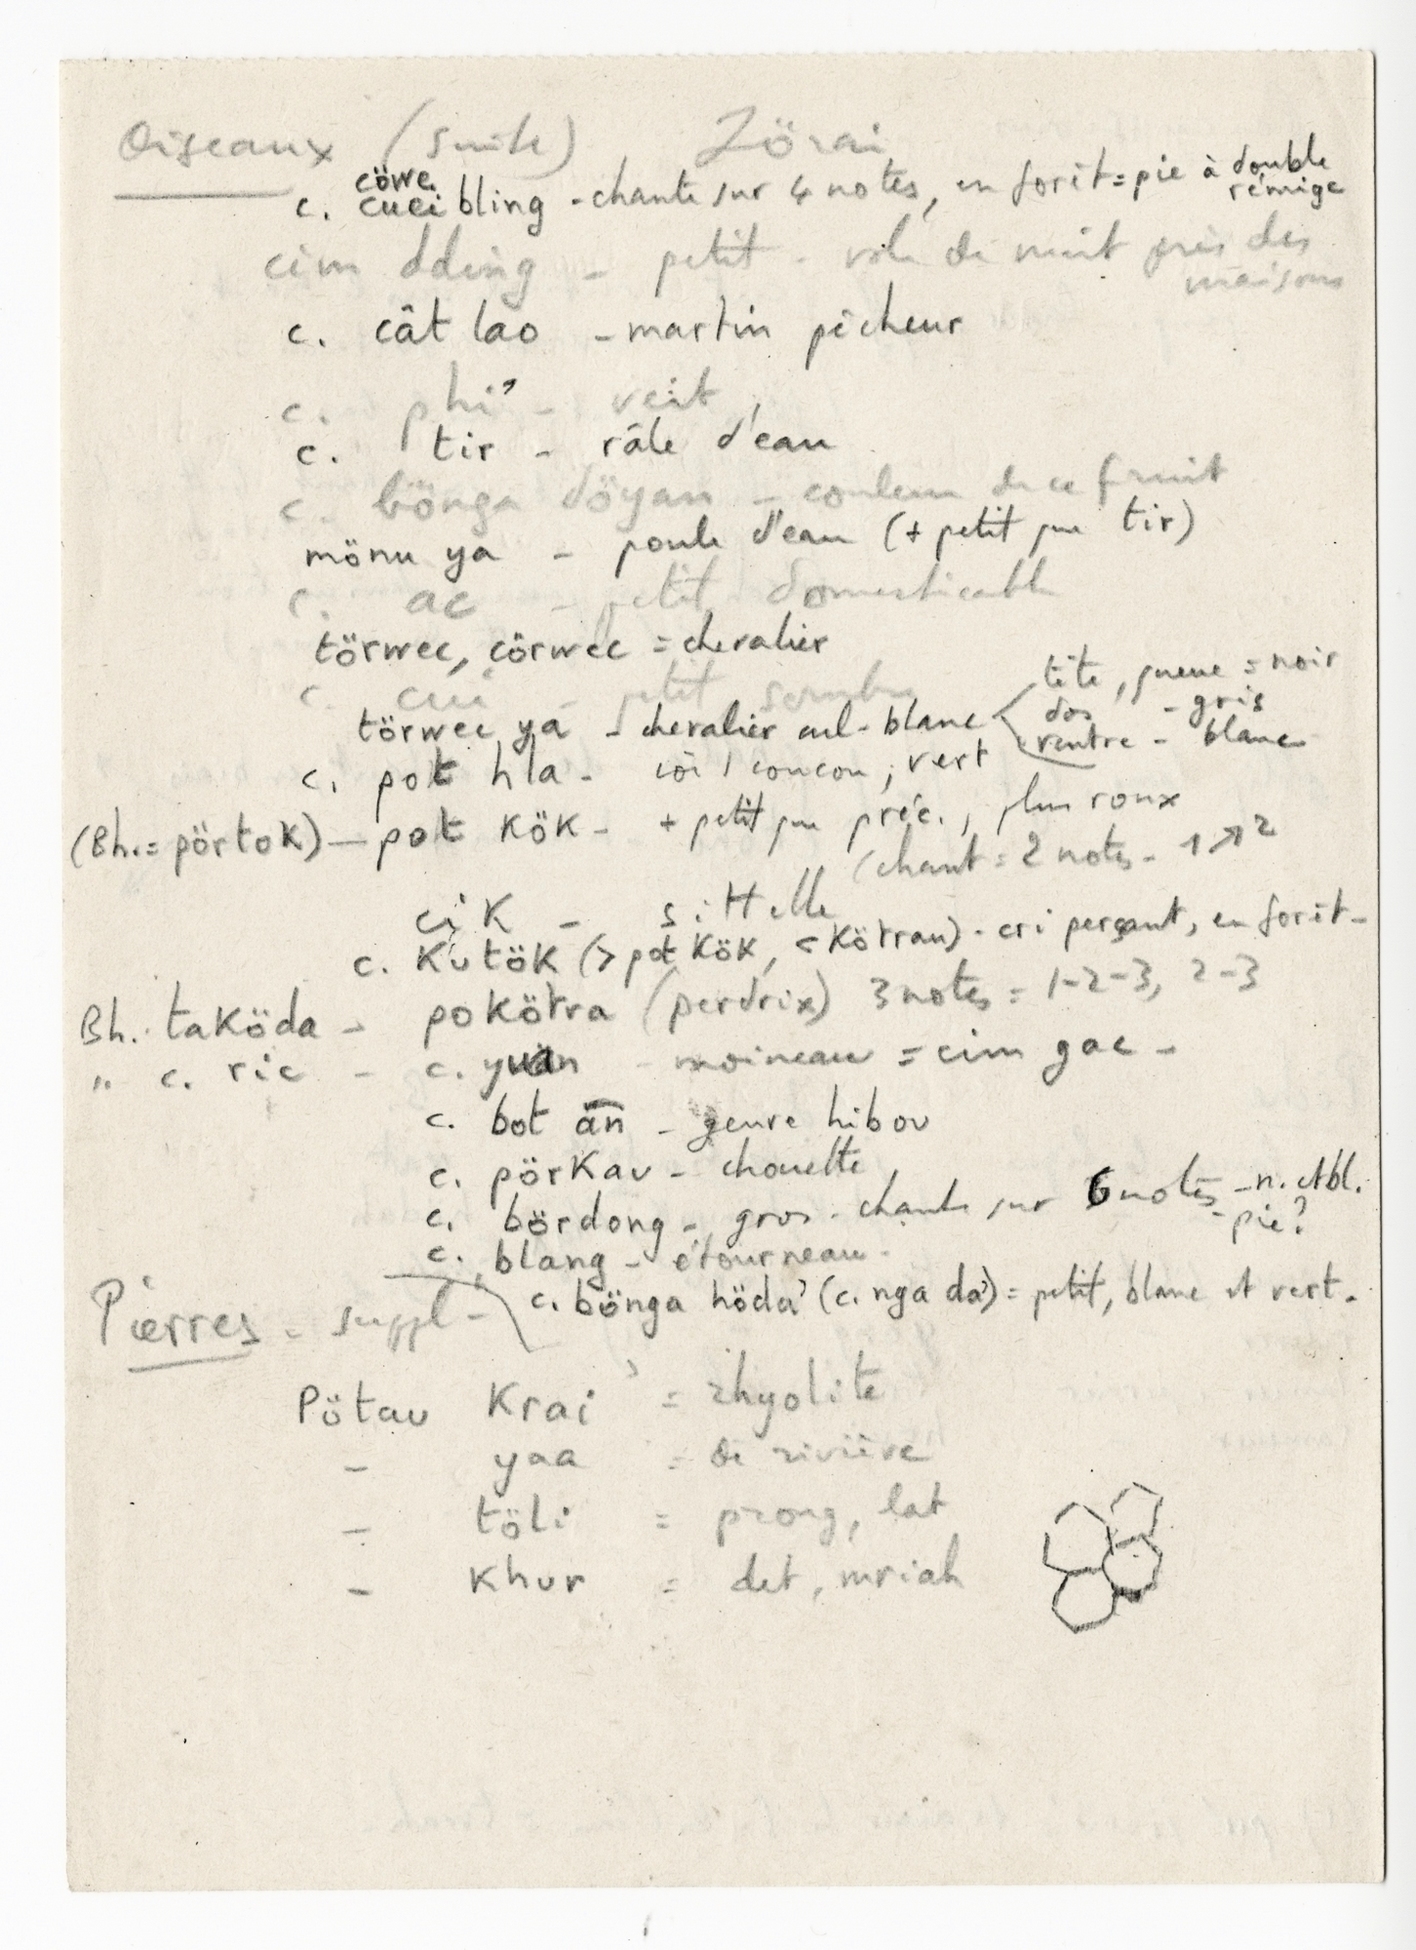 Oiseaux (suite) Jörai
cöwe
c. cuei bling - chante sur 4 notes, en forêt = pie à double rémige
cim dding - petit - vole de nuit près des maisons
c. cât lao - martin pêcheur
c. phi' - vert
c. tir - râle d'eau
c. bönga döyan - couleur de ce fruit
mönu ya - poule d'eau (+ petit que tir)
c. ac - petit domesticable
törwec, cörwec = chevalier
c. cui - petit sombre
törwec ya - chevalier cul-blanc < tête, queue = noir
dos - gris
ventre - blanc
c. pot hla - coucou, vert
(Bh. = pörtok) — pot kök - + petit que préc., plus roux
(chant = 2 notes - 1 ↗ 2
cik - sittelle
c. kutök (> pot kök, < kötrau) - cri perçant, en forêt -
Bh. taköda - pokötra (perdrix) 3 notes = 1-2-3, 2-3
" c. ric - c. yuan - moineau = cim gac -
c. bot an - genre hibou
c. pörkau - chouette
c. bördong - gros - chante sur 6 notes - n. et bl. - pie?
c. blang - étourneau -
c. bönga höda' (c. nga da') = petit, blanc et vert.
Pierres - suppl -
Pötau Krai = rhyolite
- yaa = de rivière
- töli = prong, lat
- khur = det, mriah